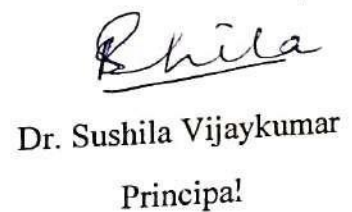 Dr. Sushila Vijaykumar
Principal